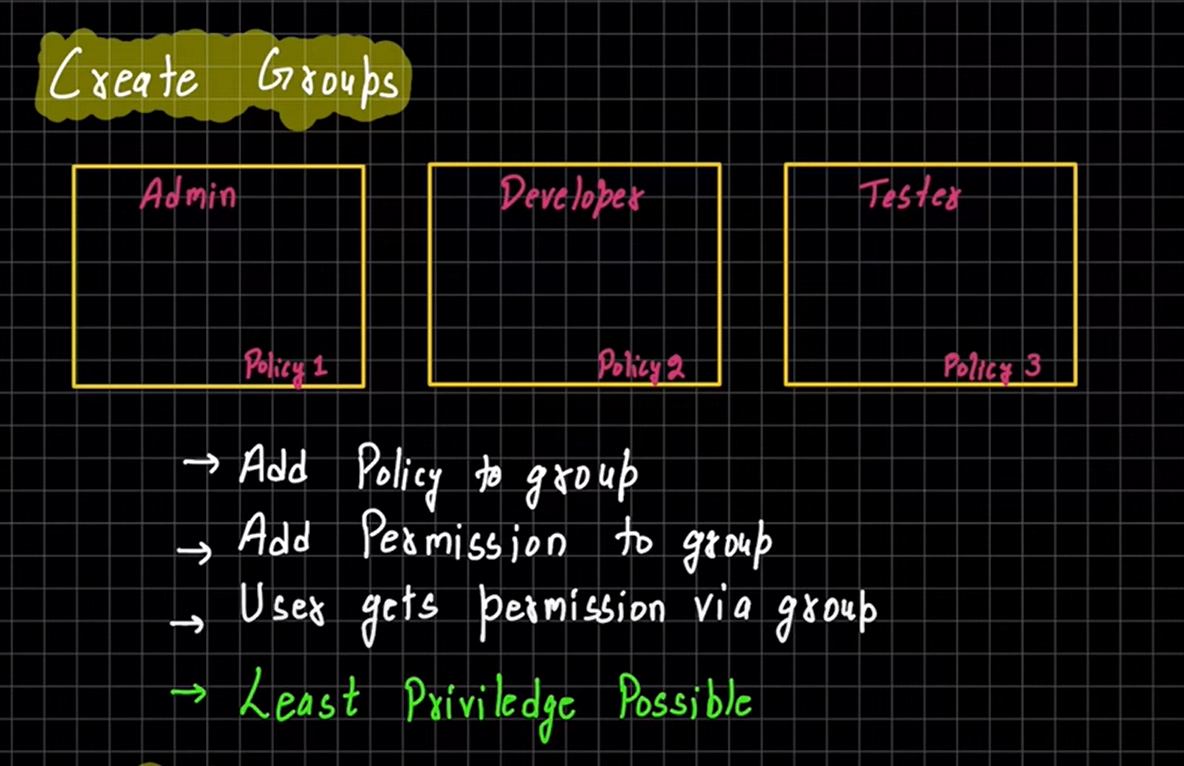 Create Groups
Admin Developer Tester
Policy 1 Policy 2 Policy 3
→ Add Policy to group
→ Add Permission to group
→ User gets permission via group
→ Least Priviledge Possible